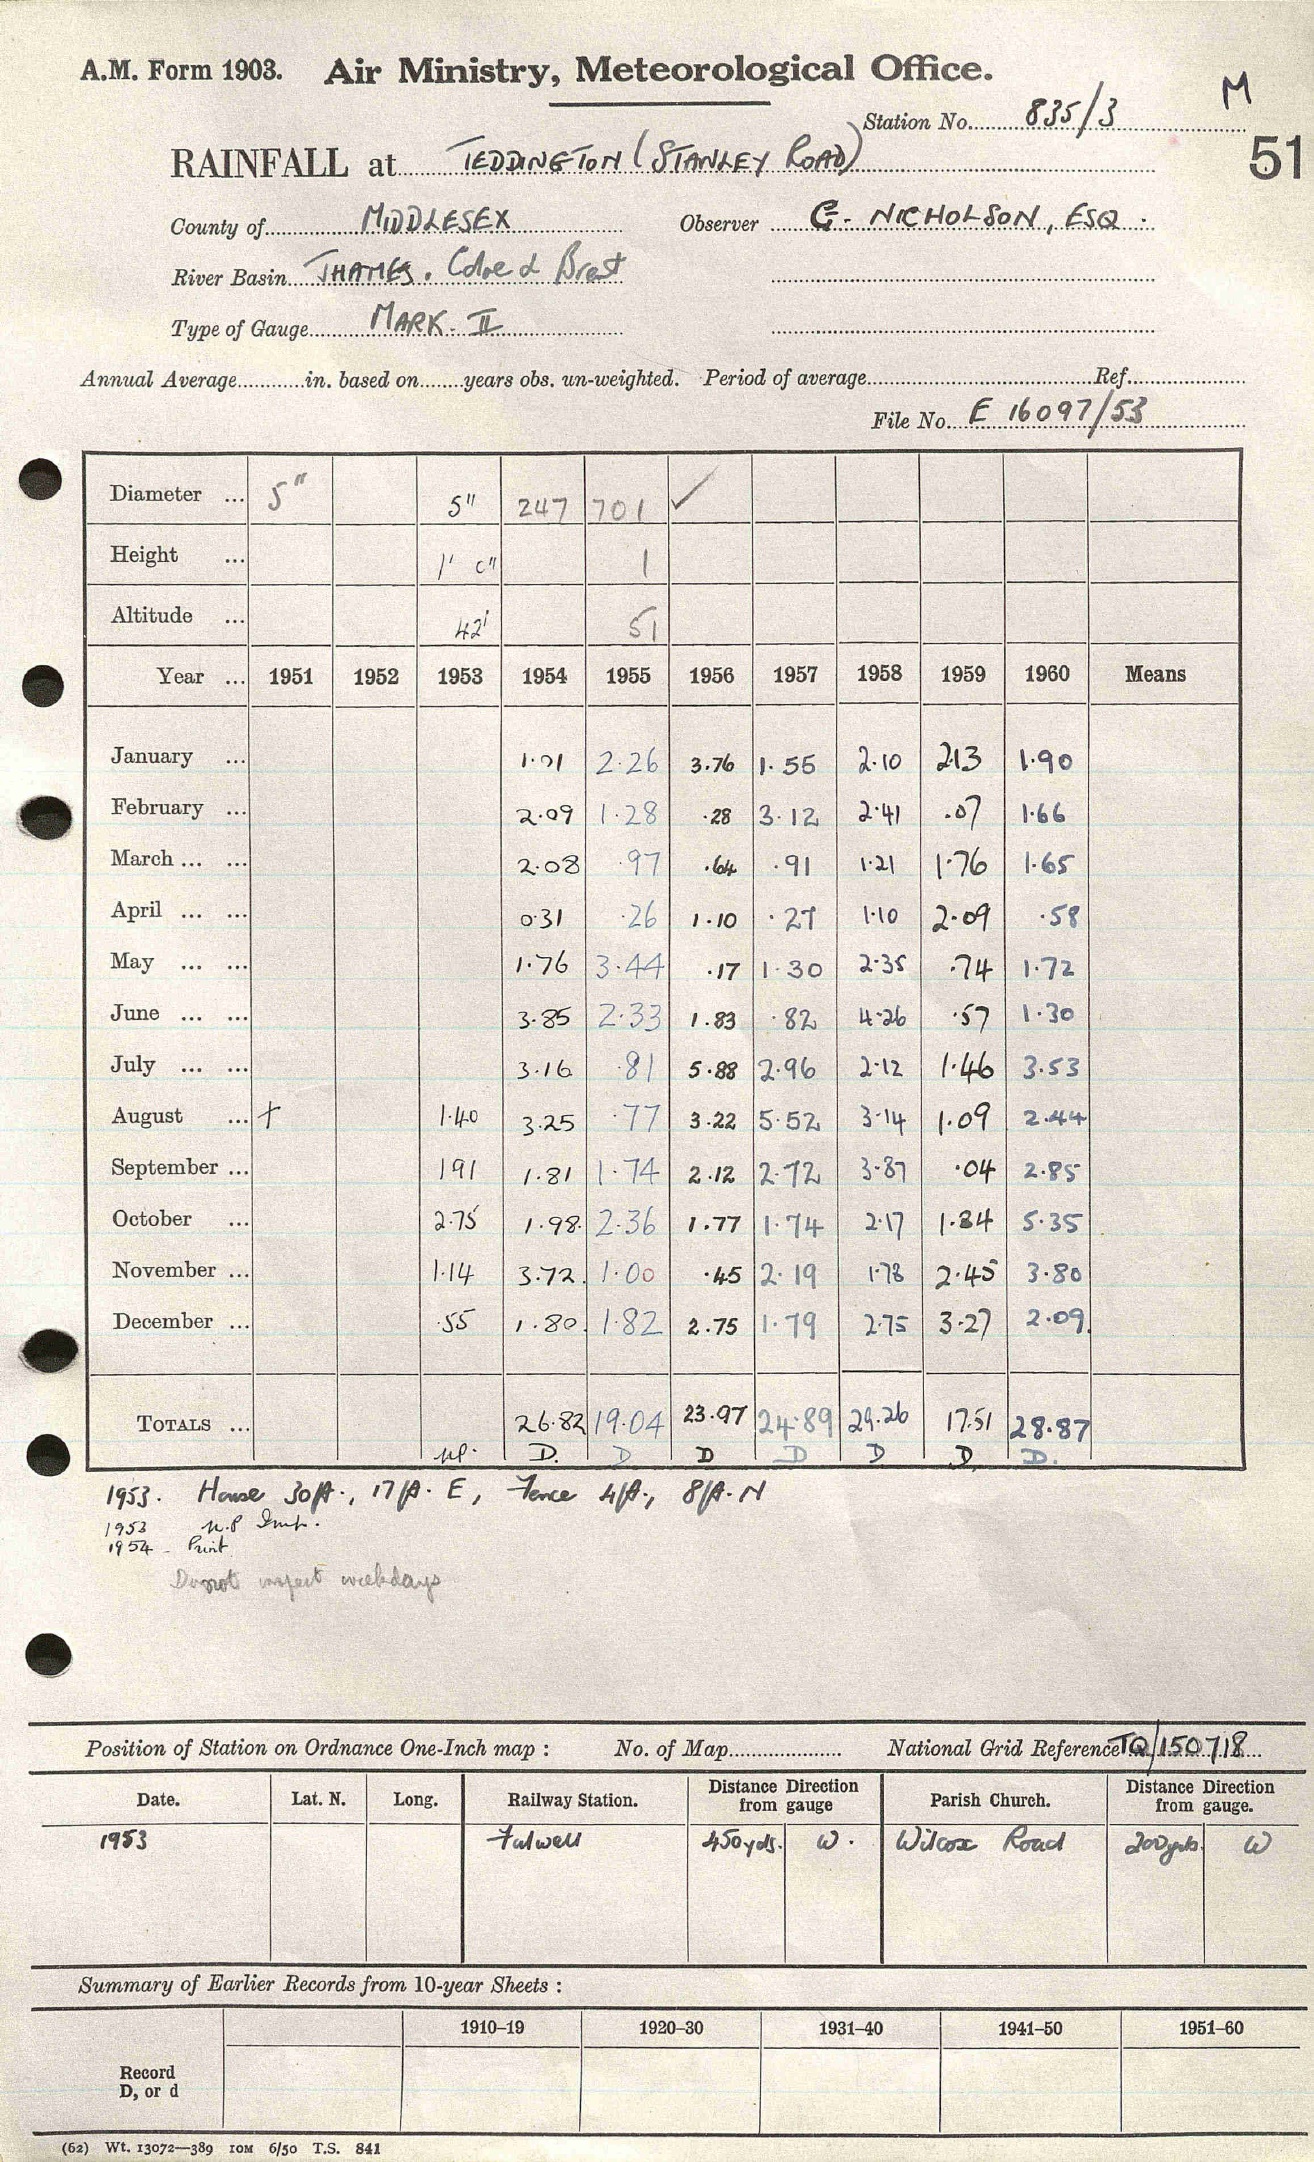 A.M. Form 1903. Air Ministry, Meteorological Office.
M
Station No. 835/3
51
RAINFALL at TEDDINGTON (STANLEY ROAD)
County of MIDDLESEX Observer G. NICHOLSON, ESQ.
River Basin THAMES. Colne & Brent
Type of Gauge MARK II
Annual Average............in. based on........years obs. un-weighted. Period of average............Ref............
File No. E 16097/53
Diameter ... 5" 5" 247 701 ✓
Height ... 1' 0" 1
Altitude ... 42' 51
Year ... 1951 1952 1953 1954 1955 1956 1957 1958 1959 1960 Means
January ... 1.01 2.26 3.76 1.55 2.10 2.13 1.90
February ... 2.09 1.28 .28 3.12 2.41 .07 1.66
March ... ... 2.08 .97 .64 .91 1.21 1.76 1.65
April ... ... 0.31 .26 1.10 .27 1.10 2.09 .58
May ... ... 1.76 3.44 .17 1.30 2.35 .74 1.72
June ... ... 3.85 2.33 1.83 .82 4.26 .57 1.30
July ... ... 3.16 .81 5.88 2.96 2.12 1.46 3.53
August ... + 1.40 3.25 .77 3.22 5.52 3.14 1.09 2.44
September ... 1.91 1.81 1.74 2.12 2.72 3.87 .04 2.85
October ... 2.75 1.98 2.36 1.77 1.74 2.17 1.84 5.35
November ... 1.14 3.72 1.00 .45 2.19 1.78 2.45 3.80
December ... .55 1.80 1.82 2.75 1.79 2.75 3.27 2.09
TOTALS ... 26.82 19.04 23.97 24.89 29.26 17.51 28.87
np. D. D D D D D D.
1953. House 30ft., 17ft. E, Fence 4ft., 8ft. N
1953 n.p
1954 - Print
Do not inspect weekdays
Position of Station on Ordnance One-Inch map : No. of Map.................... National Grid Reference TQ/150718
Date. Lat. N. Long. Railway Station. Distance Direction from gauge Parish Church. Distance Direction from gauge.
1953 Fulwell 450yds. W. Wilcox Road 200yds. W
Summary of Earlier Records from 10-year Sheets :
1910–19 1920–30 1931–40 1941–50 1951–60
Record
D, or d
(62) Wt. 13072—389 10M 6/50 T.S. 841